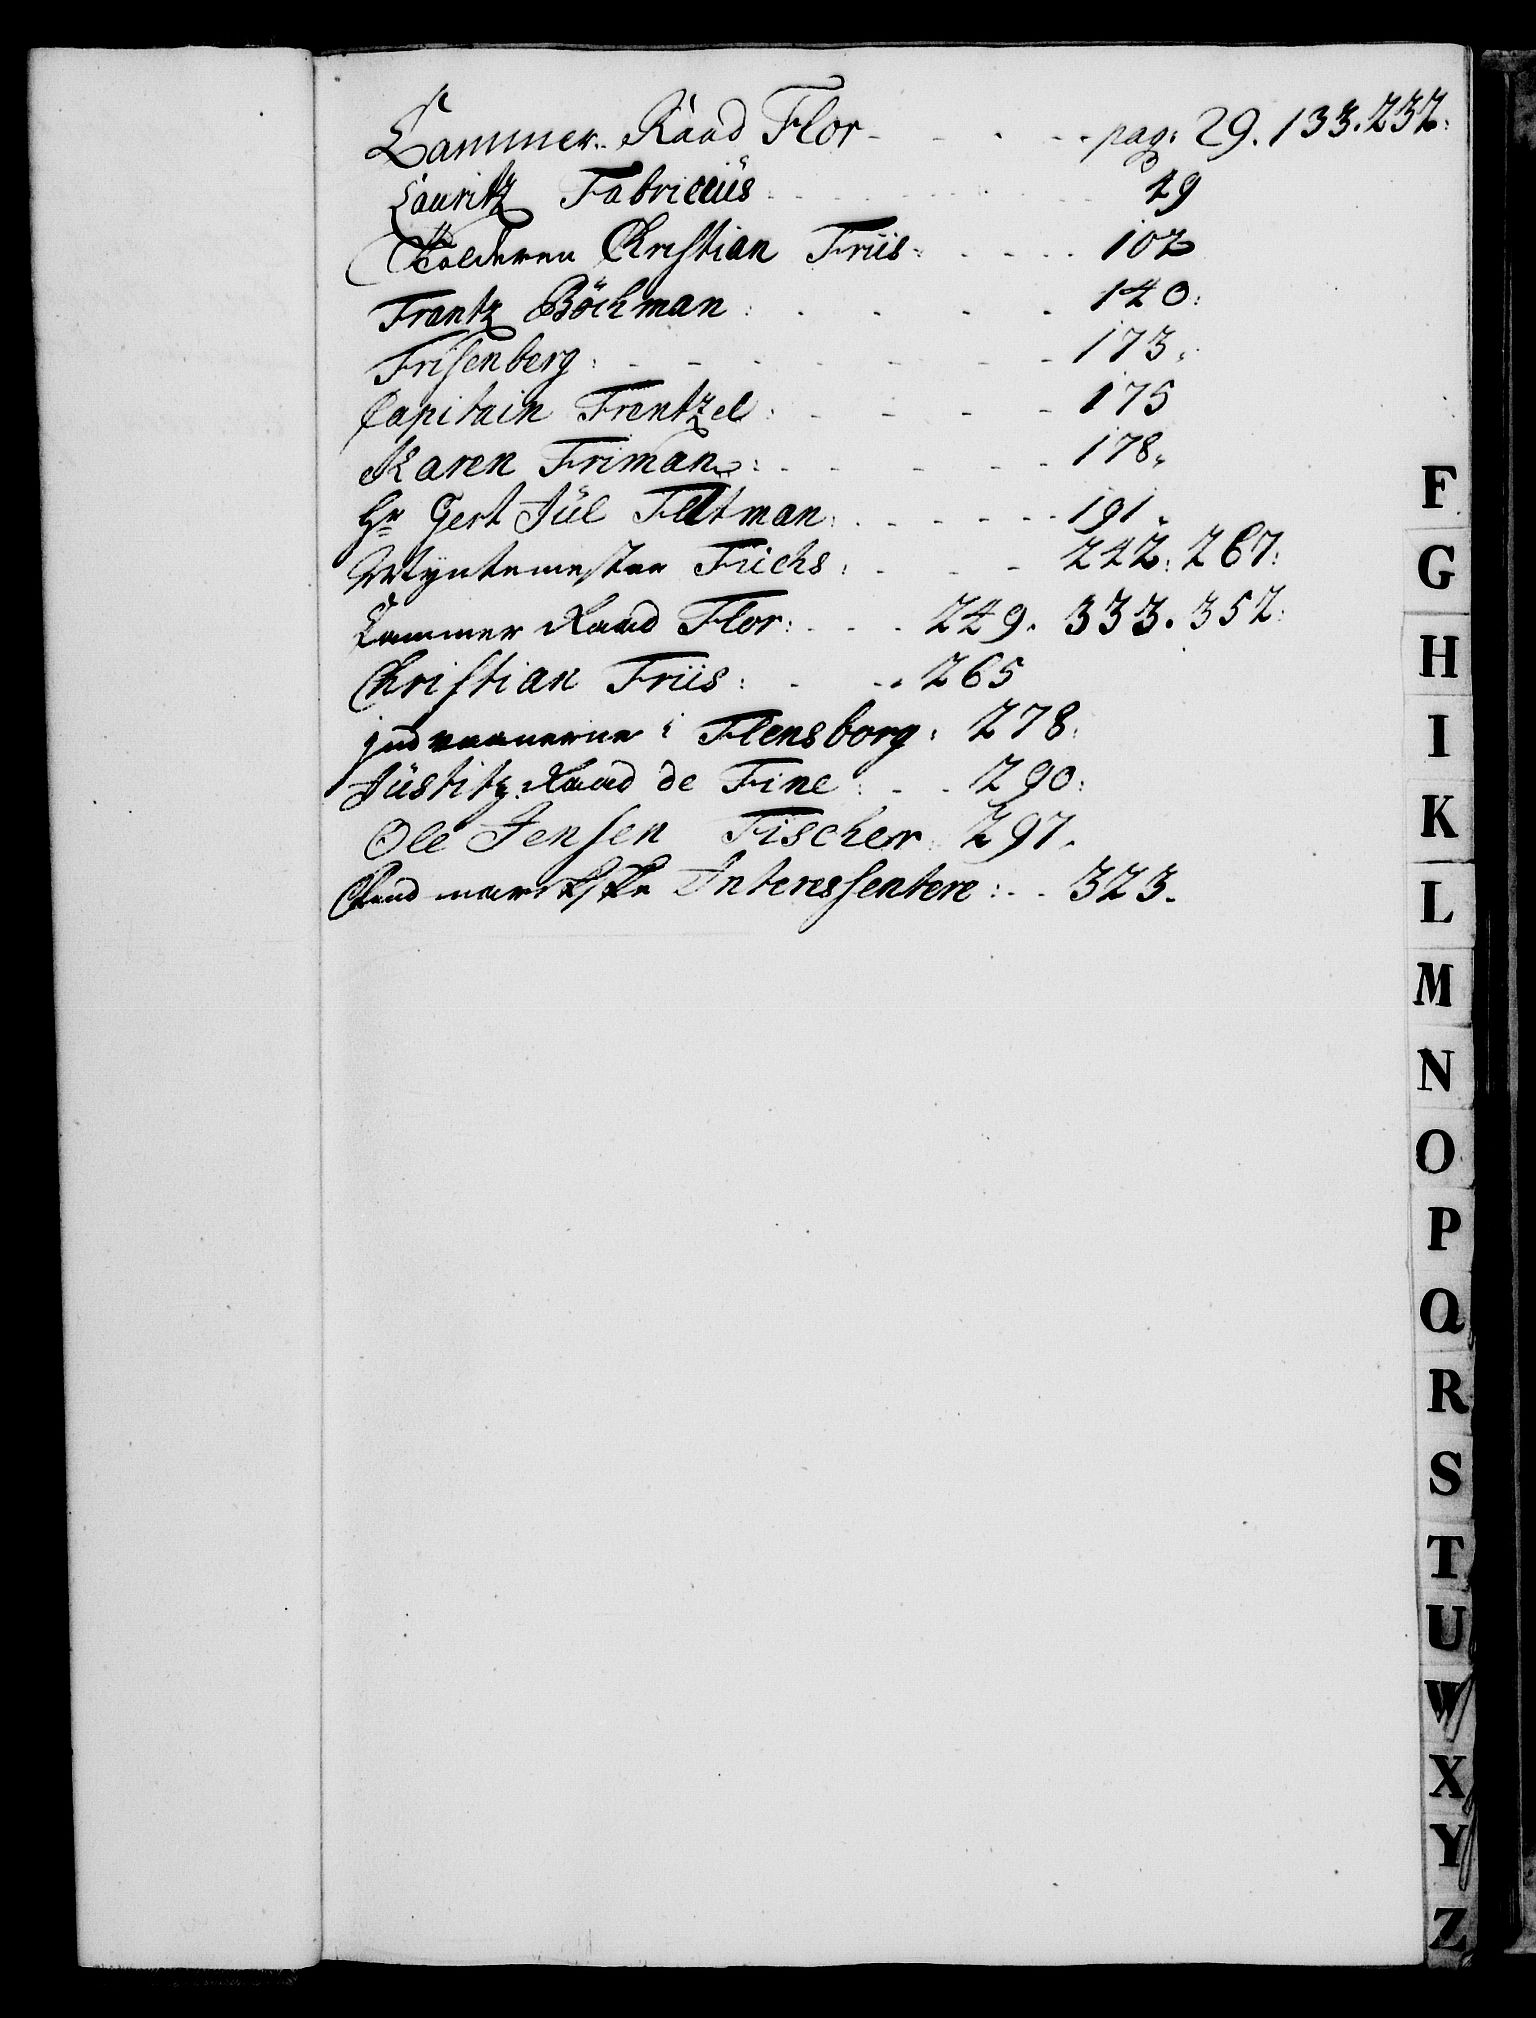 Cammer-Raad Flor - - - - pag: 29. 133. 232.
Lauritz Fabricius - - - - 49
Christian Friis - - - - 102
Frantz Böchman: - - - - 140:
Frisenberg: - - - - 173.
Capitain Frentzel: - - - - 175
Karen Friman: - - - - 178.
Hr Gert Jül Feltman: - - - - 191.
Myntemester Fuchs: - - - 242: 267:
Cammer Raad Flor: - - - 249. 333. 352:
Christian Friis: - - - 265
indvaanerne i Flensborg: 278.
Jüstitz Raad de Fine: - - 290:
Ole Jensen Fischer: 297.
Interessentere: - - 323.
F
G
H
I
K
L
M
N
O
P
Q
R
S
T
U
W
X
Y
Z